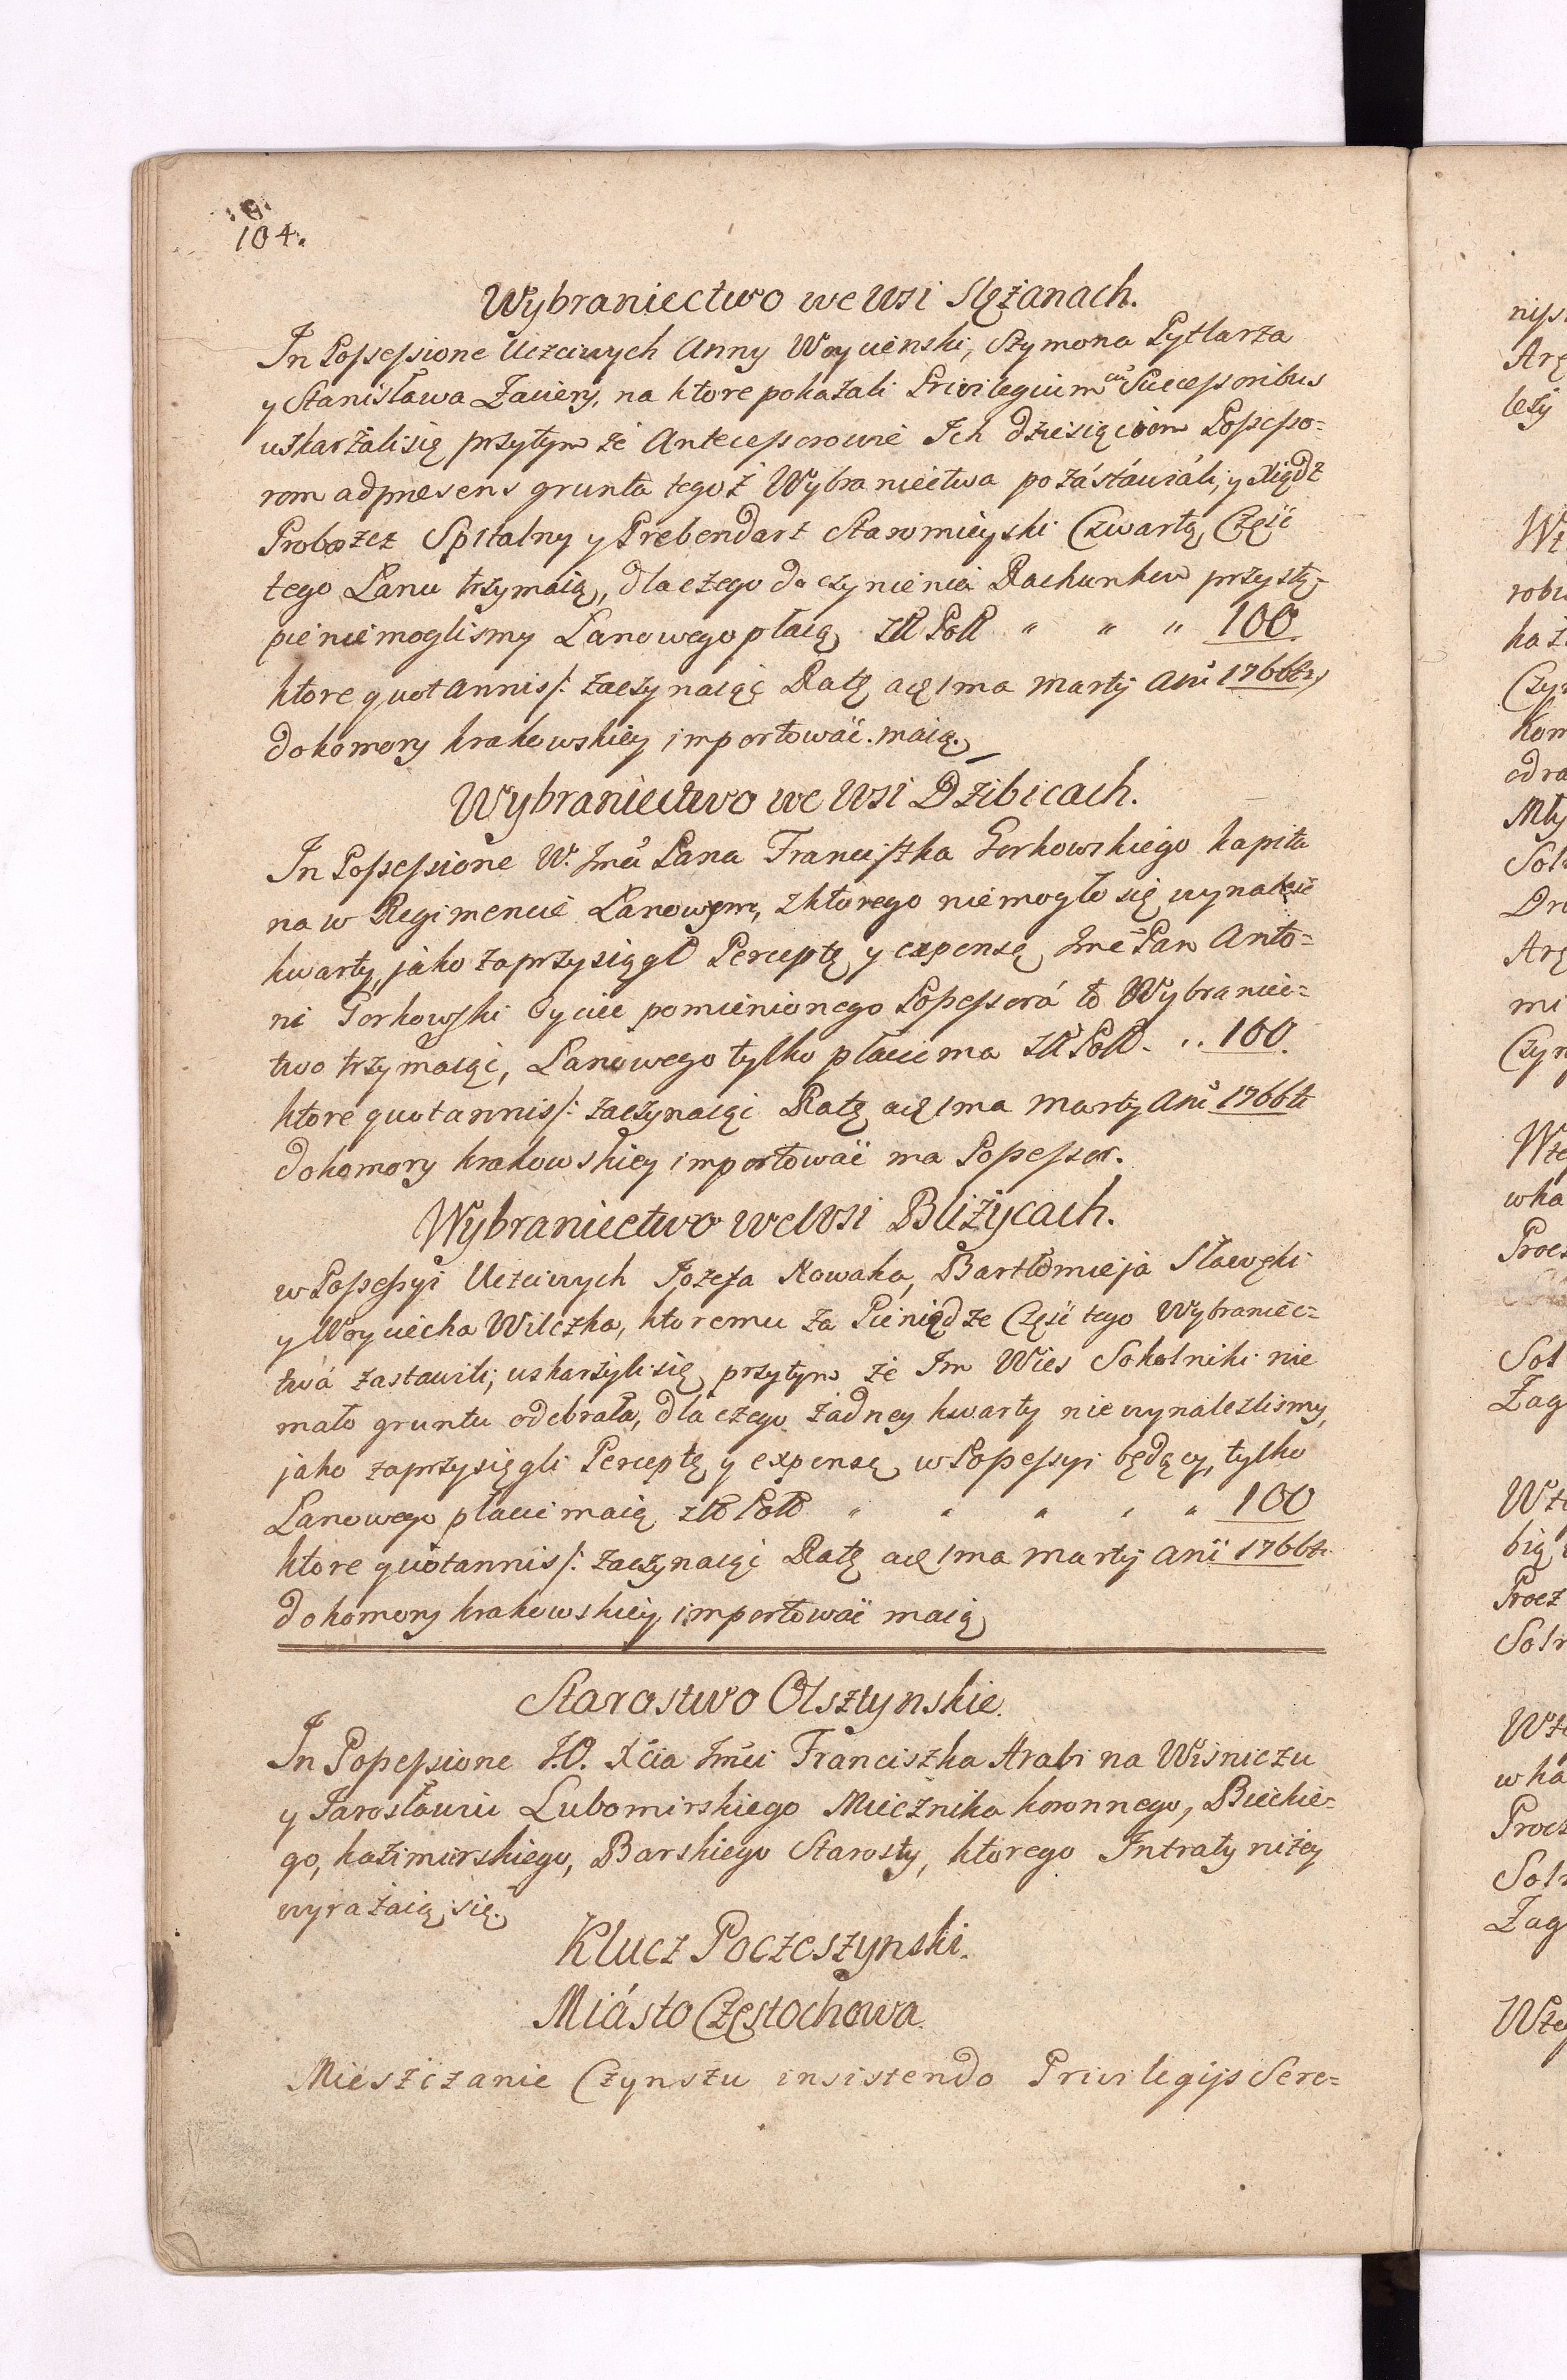 104.
Wybraniectwo we Wsi Slężanach.
In Possessione Uczciwych Anny Woycienski, Szymona Pytlarza
y Stanisława Zaciery, na ktore pokazali Privilegium Successoribus
uskarzali się przytym że Antecessorowie Ich dziesięciom Possesso=
rom adpraesens grunta tegoż Wybraniectwa pozástáwiáli, y Xiądz
Proboszcz Szpitalny y Prebendarz Staromieyski Czwartą Część
tego Łanu trzymaią, dlaczego do czynienia Rachunkow przystę=
pić niemoglismy Łanowego płacą Zł Poll " " " 100
ktore quotannis /: zaczynaiąc Ratę a 1ma Martij Anni 1766ti
do komory krakowskiey importować maią.
Wybraniectwo we Wsi Dzibicach.
In Possessione W. Jmci Pana Franciszka Gorkowskiego kapita
na w Regimencie Łanowym, z ktorego niemogło się wynaleść
kwarty, jako zaprzysiągł Perceptę y expensę Jmc Pan Anto=
ni Gorkowski Oyciec pomienionego Possessorá to Wybraniec=
two trzymaiąc, Łanowego tylko płacić ma Zł Poll . . 100
ktore quotannis /: zaczynaiąc Ratę a 1ma Martij Anni 1766ti
do komory krakowskiey importować ma Possessor.
Wybraniectwo we Wsi Bliżycach.
w Possessyi Uczciwych Jozefa Nowaka, Bartłomieja Sławęski
y Woyciecha Wilczka, ktoremu za Pieniądze Część tego Wybraniec=
twá zastawili; uskarżyli się przytym że Im Wies Sokolniki nie
mało gruntu odebrała, dlaczego żadney kwarty nie wynalezlismy,
jako zaprzysięgli Perceptę y expensę w Possessyi będący, tylko
Łanowego płacić maią zł Poll " " " " " 100
ktore quotannis /: zaczynaiąc Ratę a 1ma Martij Anni 1766ti
do komory krakowskiey importować maią
Starostwo Olsztynskie.
In Possessione J.O. Xcia Jmci Franciszka Hrabi na Wisniczu
y Jarosławiu Lubomirskiego Miecznika koronnego, Bieckie=
go, kazimirskiego, Barskiego Starosty, ktorego Intraty niżey
wyrażaią się.
Klucz Poczeszynski.
Miásto Częstochowa.
Mieszczanie Czynszu insistendo Privilegijs Sere=